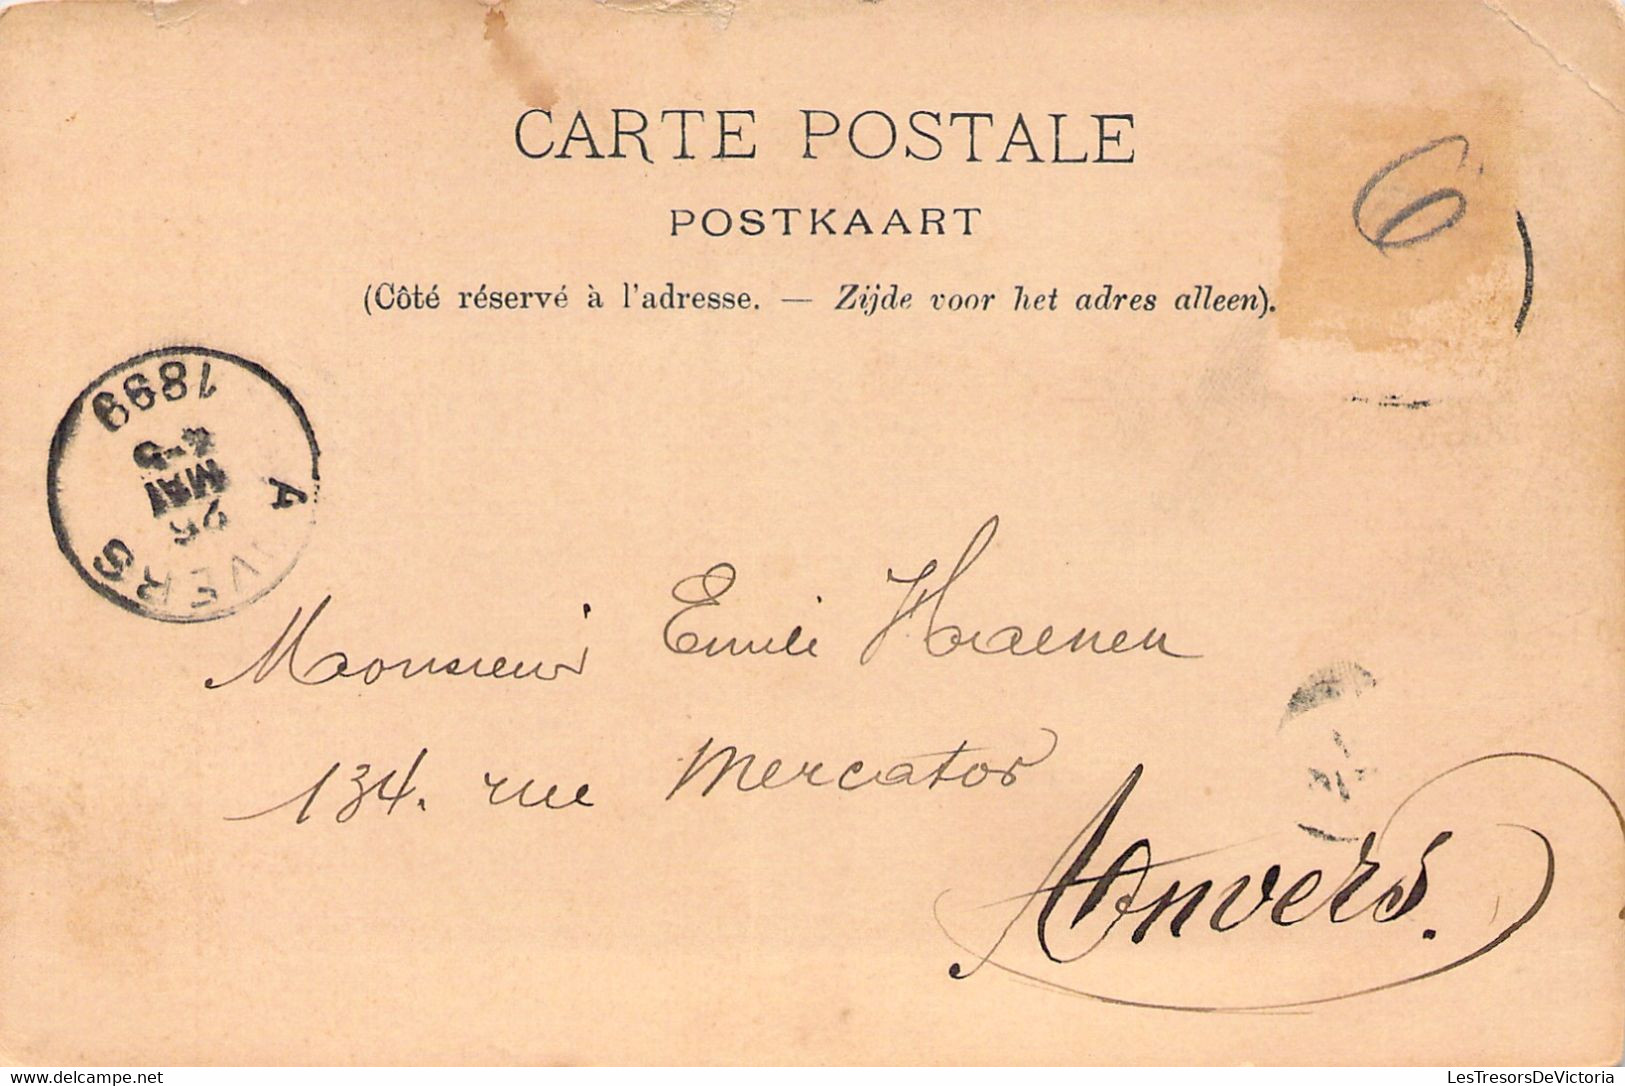 CARTE POSTALE
POSTKAART
(Côté réservé à l'adresse. — Zijde voor het adres alleen).
6
ANVERS
25
MAI
4-5
1899
Monsieur Emile Haenen
134. rue Mercator
Anvers.
www.delcampe.net
LesTresorsDeVictoria